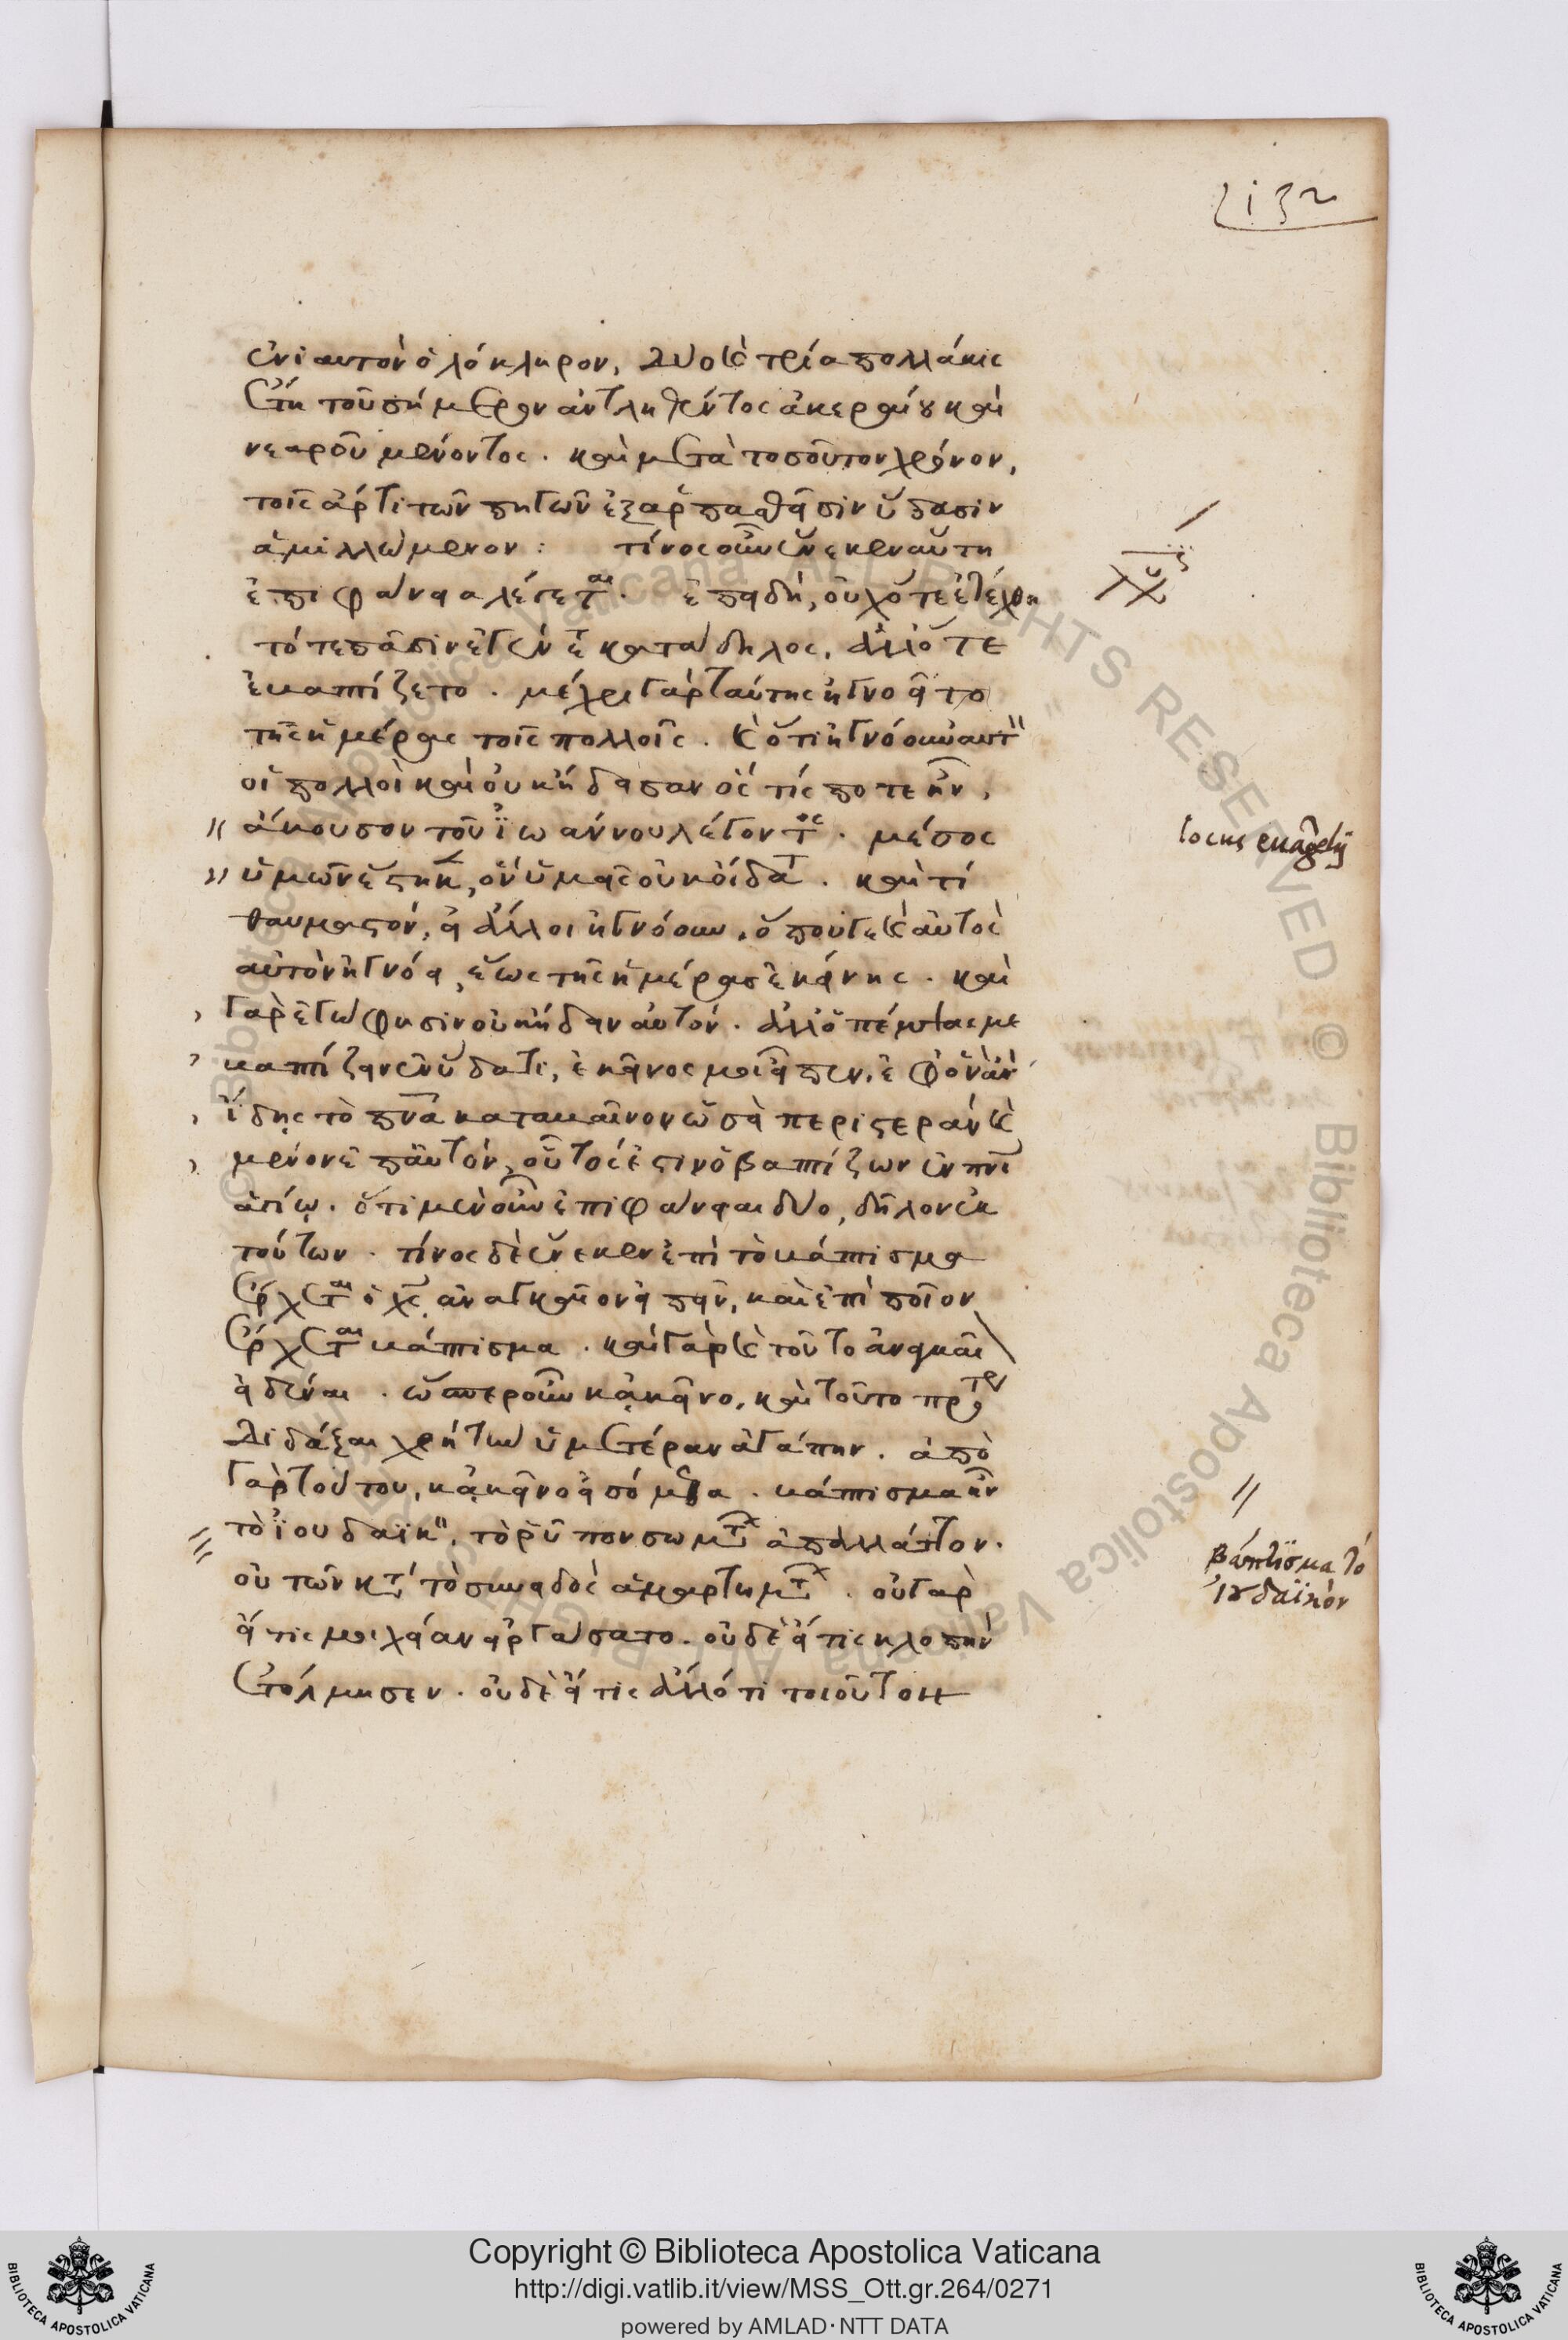 ἐνιαυτὸν ὁλόκληρον, δύο καὶ τρία πολλάκις
ἔτη τοῦ σήμερον ἀντληθέντος ἀκεραίου καὶ
νεαροῦ μένοντος. καὶ μετὰ τοσοῦτον χρόνον,
τοῖς ἄρτι τῶν πηγῶν ἐξαρπασθεῖσιν ὕδασιν
ἁμιλλώμενον: τίνος οὖν ἕνεκεν αὕτη
ἐπιφάνεια λέγεται. ἐπειδή, οὐχ ὅτε ἐτέχθη
τότε πᾶσιν ἐγένετο κατάδηλος, ἀλλ' ὅτε
ἐβαπτίζετο. μέχρι γὰρ ταύτης ἠγνοεῖτο
τῆς ἡμέρας τοῖς πολλοῖς. καὶ ὅτι ἠγνόουν αὐτὸν
οἱ πολλοὶ καὶ οὐκ ᾔδεσαν ὅστίς ποτε ἦν,
ἄκουσον τοῦ ἰωάννου λέγοντος. μέσος
ὑμῶν ἕστηκεν, ὃν ὑμεῖς οὐκ οἴδατε. καὶ τί
θαυμαστόν, εἰ ἄλλοι ἠγνόουν, ὅπου γε καὶ αὐτὸς
αὐτὸν ἠγνόει, ἕως τῆς ἡμέρας ἐκείνης. καὶ
γὰρ ἐγώ φησιν οὐκ ᾔδειν αὐτόν. ἀλλ' ὁ πέμψας με
βαπτίζειν ἐν ὕδατι, ἐκεῖνος μοι εἶπεν, ἐφ' ὃν ἂν
ἴδης τὸ πνα καταβαῖνον ὡσεὶ περιστερὰν καὶ
μένον ἐπ' αὐτόν, οὗτός ἐστιν ὁ βαπτίζων ἐν πνι
ἁγίῳ. ὅτι μὲν οὖν ἐπιφάνειαι δύο, δῆλον ἐκ
τούτων. τίνος δὲ ἕνεκεν ἐπὶ τὸ βάπτισμα
ἔρχεται ὁ χς ἀναγκαῖον εἰπεῖν, καὶ ἐπὶ ποῖον
ἔρχεται βάπτισμα. καὶ γὰρ καὶ τοῦτο ἀναγκαῖον
εἰδέναι. ὥσπερ οὖν κἀκεῖνο, καὶ τοῦτο πρότερον
διδάξαι χρὴ τὴν ὑμετέραν ἀγάπην. ἀπὸ
γὰρ τούτου, κἀκεῖνο εἰσόμεθα. βάπτισμα ἦν
τὸ ἰουδαϊκὸν, τὸ ῥύπον σωματικὸν ἀπαλλάττον.
οὐ τῶν κατὰ τὸ συνειδὸς ἁμαρτημάτων. οὐ γὰρ
εἴ τις μοιχείαν εἰργάσατο. οὐδὲ εἴ τις κλοπὴν
ἐτόλμησεν. οὐδὲ εἴ τις ἄλλό τι τοιοῦτον
locus euāgelij
βάπτισμα τὸ
ἰουδαϊκόν
Copyright © Biblioteca Apostolica Vaticana
http://digi.vatlib.it/view/MSS_Ott.gr.264/0271
powered by AMLAD·NTT DATA
BIBLIOTECA APOSTOLICA VATICANA
BIBLIOTECA APOSTOLICA VATICANA